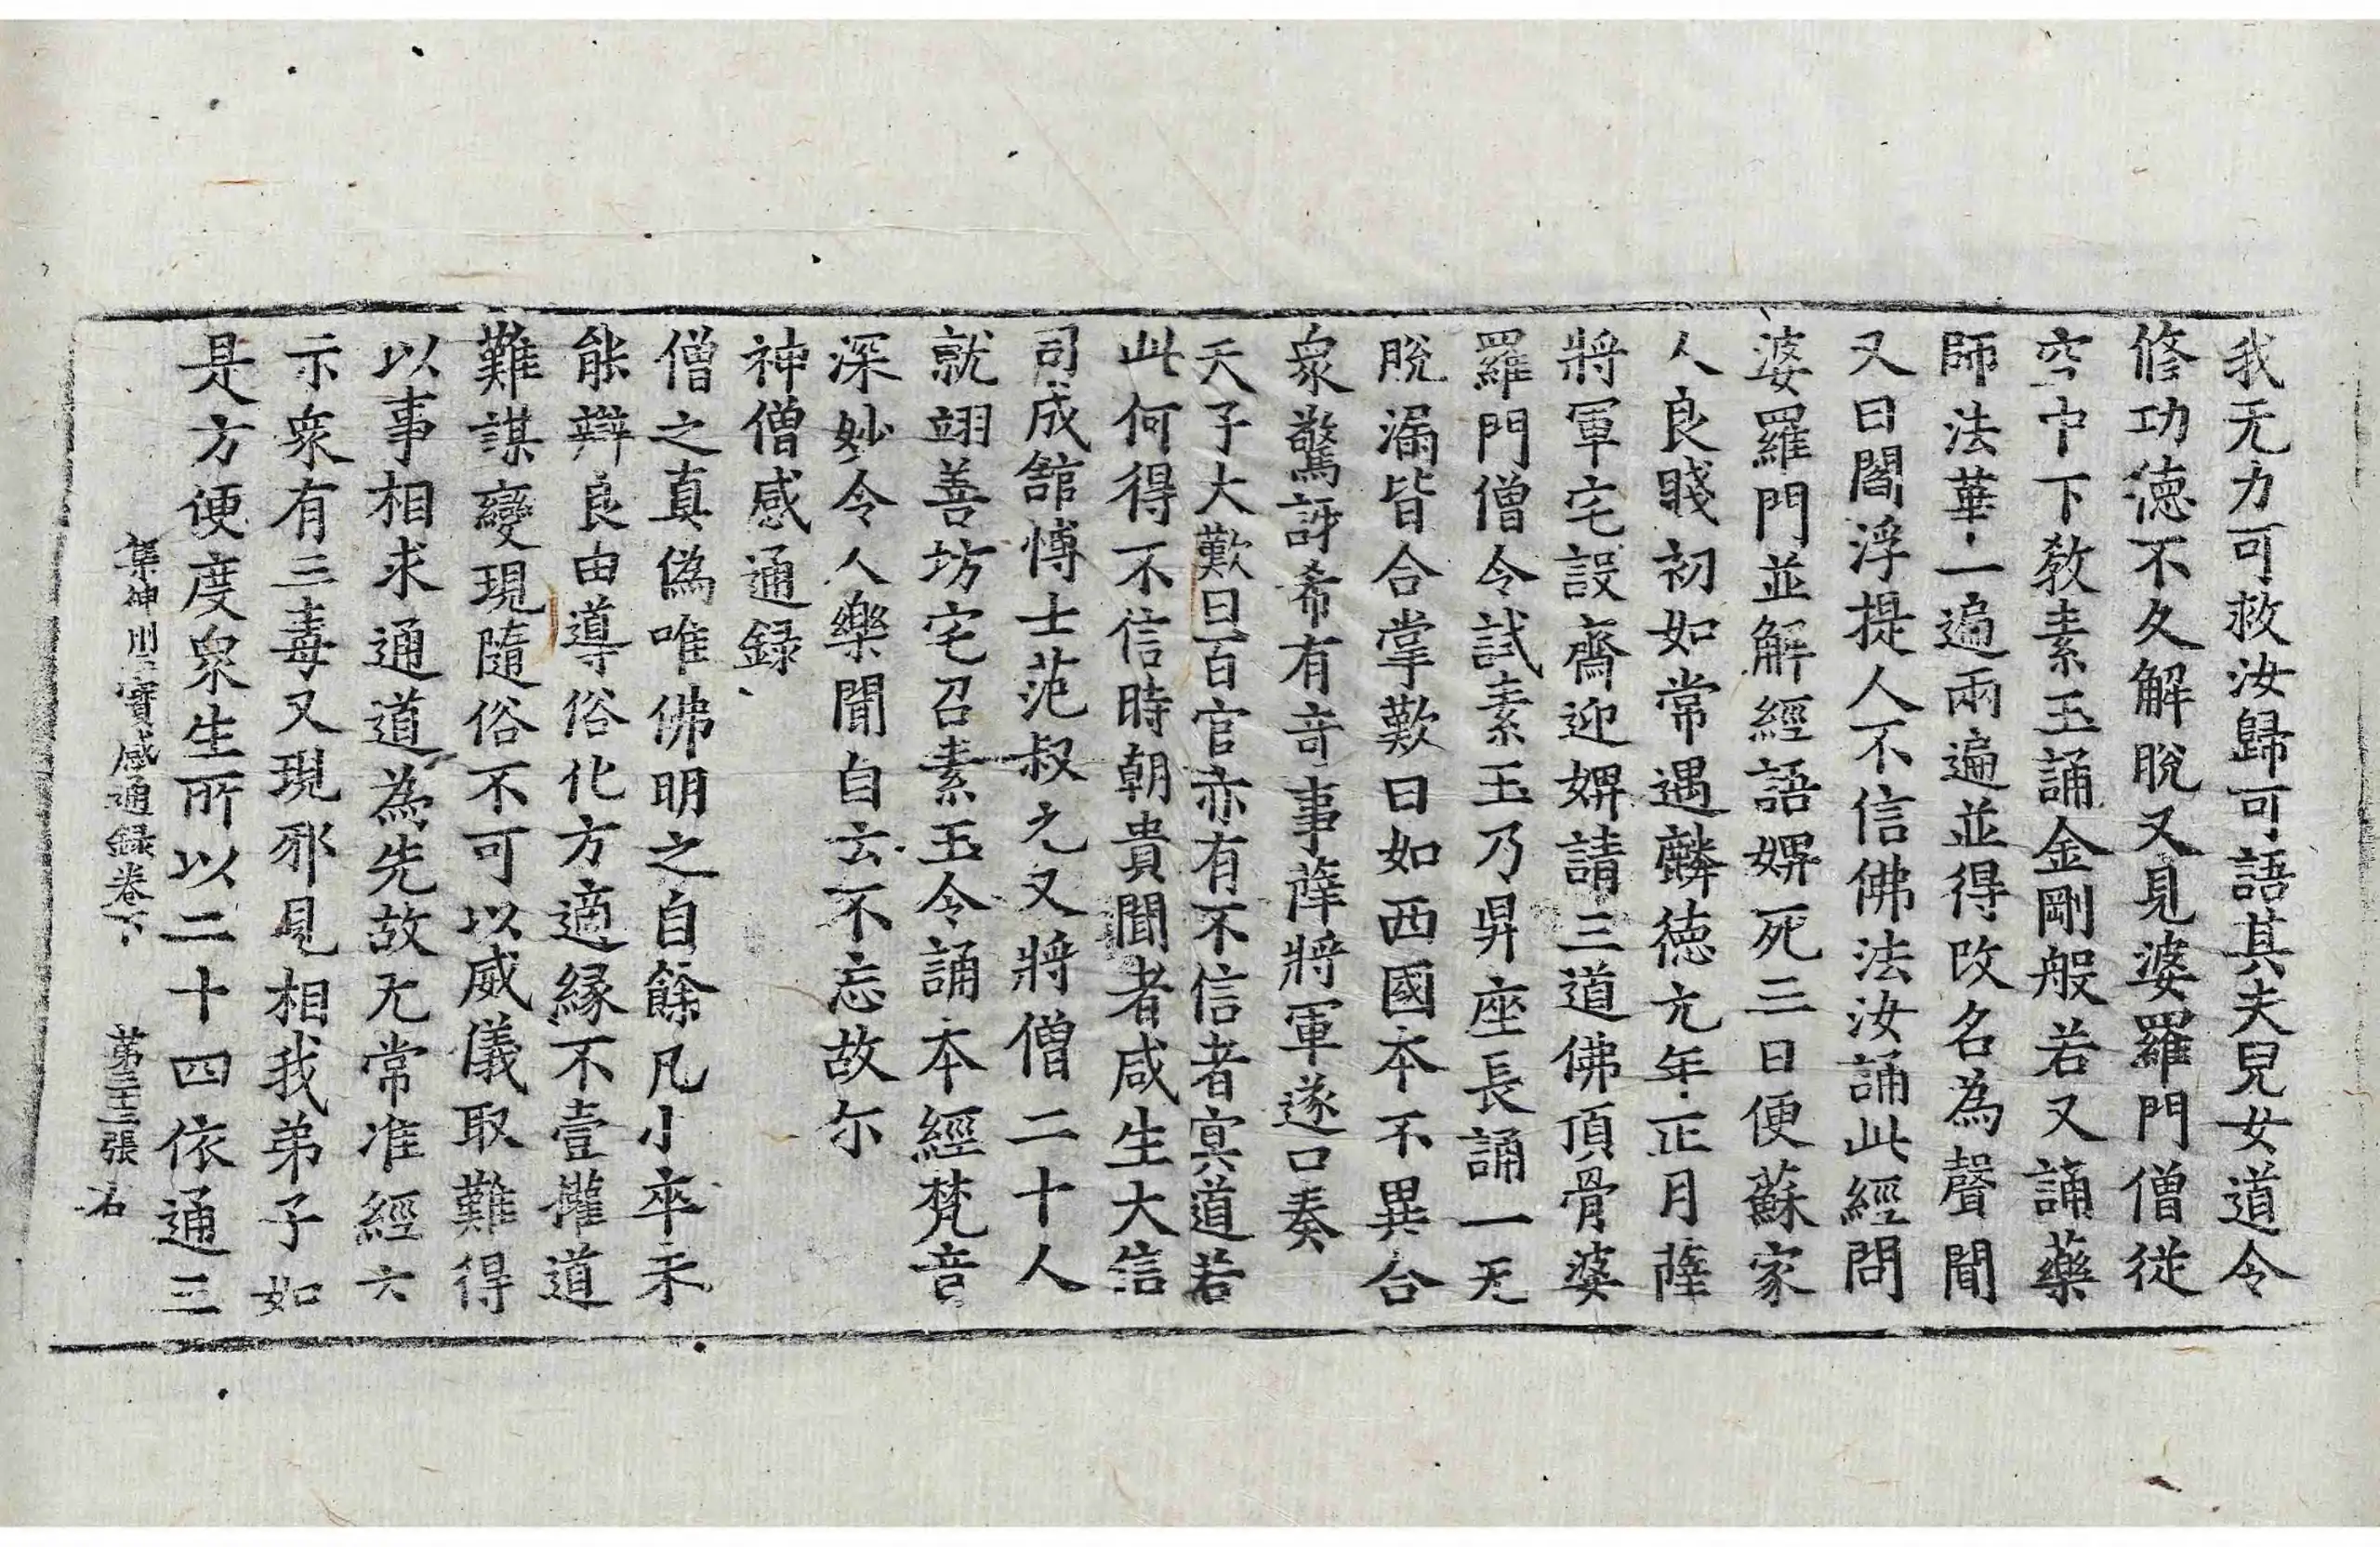 我无力可救汝歸可語其夫兒女道令
修功徳不久解脫又見婆羅門僧從
空中下教素玉誦金剛般若又誦藥
師法華一遍兩遍並得改名為聲聞
又曰閻浮提人不信佛法汝誦此經問
婆羅門並解經語婢死三日便蘇家
人良賤初如常遇麟徳元年正月薩
將軍宅設齋迎婢請三道佛頂骨婆
羅門僧令試素玉乃昇座長誦一无
脫漏皆合掌歎曰如西國本不異合
衆驚訝希有竒事薩將軍遂口奏
天子大歎曰百官亦有不信者冥道若
此何得不信時朝貴聞者咸生大信
司成舘愽士范叔元又將僧二十人
就翊善坊宅召素玉令誦本經梵音
深妙令人樂聞自云不忘故尒
神僧感通録
僧之真偽唯佛明之自餘凡小卒未
能辯良由導俗化方適緣不壹權道
難謀變現隨俗不可以威儀取難得
以事相求通道為先故无常准經六
示衆有三毒又現邪見相我弟子如
是方便度衆生所以二十四依通三
集神州三寶感通録卷下 苐三十三張 右